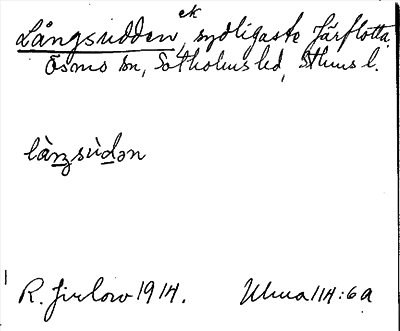 Långsudden, ek
sydligaste Järflotta,
Ösmo sn, Sotholms hd, Sthms l.
làŋsùdən
R. Jirlow 1914. Ulma 114:6a